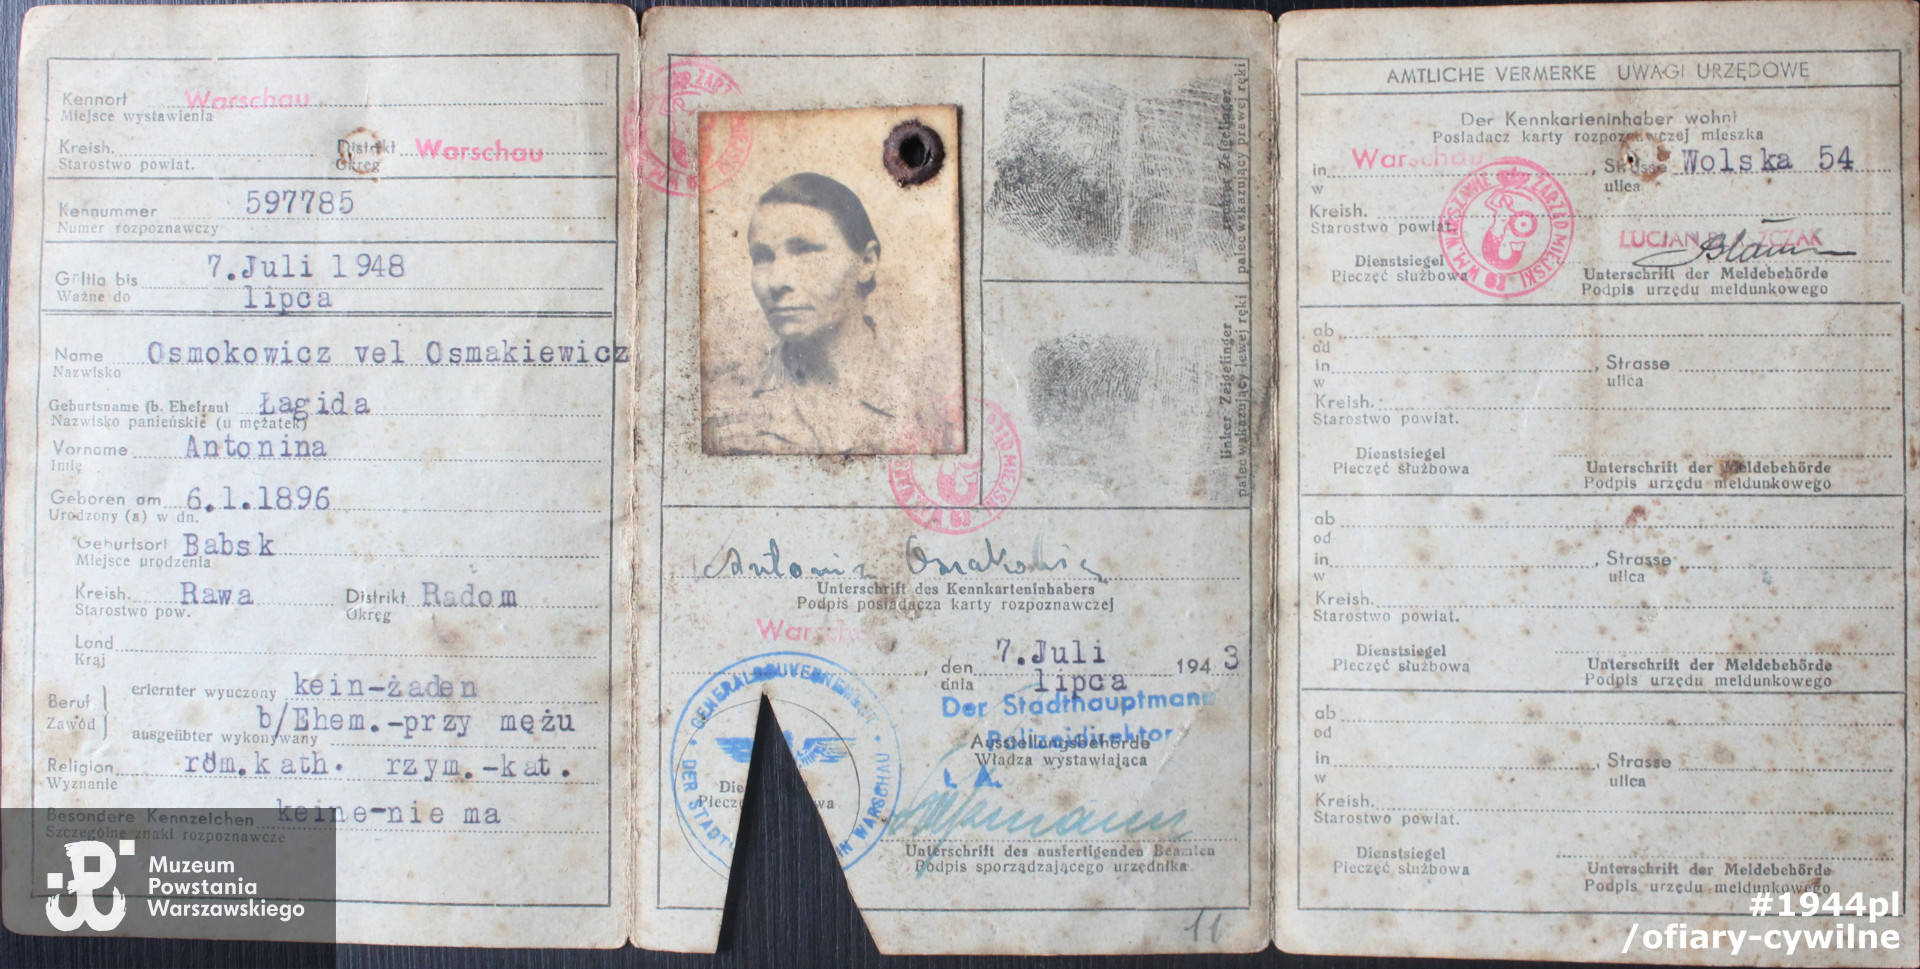 Kennort Warschau
Miejsce wystawienia
Kreish. Distrikt Warschau
Starostwo powiat. Okręg
Kennummer 597785
Numer rozpoznawczy
Gültig bis 7.Juli 1948
Ważne do lipca
Name Osmokowicz vel Osmakiewicz
Nazwisko
Geburtsname (b. Ehefrau) Łagida
Nazwisko panieńskie (u mężatek)
Vorname Antonina
Imię
Geboren am 6.1.1896
Urodzony (a) w dn.
Geburtsort Babsk
Miejsce urodzenia
Kreish. Rawa Distrikt Radom
Starostwo pow. Okręg
Land
Kraj
Beruf erlernter wyuczony kein-żaden
Zawód ausgeübter wykonywany b/Ehem.-przy mężu
Religion röm.kath. rzym.-kat.
Wyznanie
Besondere Kennzeichen keine-nie ma
Szczególne znaki rozpoznawcze
Muzeum
Powstania
Warszawskiego
rechter Zeigefinger
palec wskazujący prawej ręki
linker Zeigefinger
palec wskazujący lewej ręki
Unterschrift des Kennkarteninhabers
Podpis posiadacza karty rozpoznawczej
Warschau
, den 7.Juli 1943
dnia lipca
Der Stadthauptmann
Polizeidirektor
Ausstellungsbehörde
Władza wystawiająca
I. A.
GENERALGOUVERNEMENT
DER STADT IN WARSCHAU
Unterschrift des ausfertigenden Beamten
Podpis sporządzającego urzędnika
11
AMTLICHE VERMERKE UWAGI URZĘDOWE
Der Kennkarteninhaber wohnt
Posiadacz karty rozpoznawczej mieszka
in Warschau, Strasse Wolska 54
w ulica
Kreish.
Starostwo powiat.
ZARZĄD MIEJSKI W M. WARSZAWIE
LUCJAN BŁASZCZAK
Dienstsiegel Unterschrift der Meldebehörde
Pieczęć służbowa Podpis urzędu meldunkowego
ab
od
in , Strasse
w ulica
Kreish.
Starostwo powiat.
Dienstsiegel Unterschrift der Meldebehörde
Pieczęć służbowa Podpis urzędu meldunkowego
ab
od
in , Strasse
w ulica
Kreish.
Starostwo powiat.
Dienstsiegel Unterschrift der Meldebehörde
Pieczęć służbowa Podpis urzędu meldunkowego
ab
od
in , Strasse
w ulica
Kreish.
Starostwo powiat.
Dienstsiegel Unterschrift der Meldebehörde
Pieczęć służbowa Podpis urzędu meldunkowego
#1944pl
/ofiary-cywilne